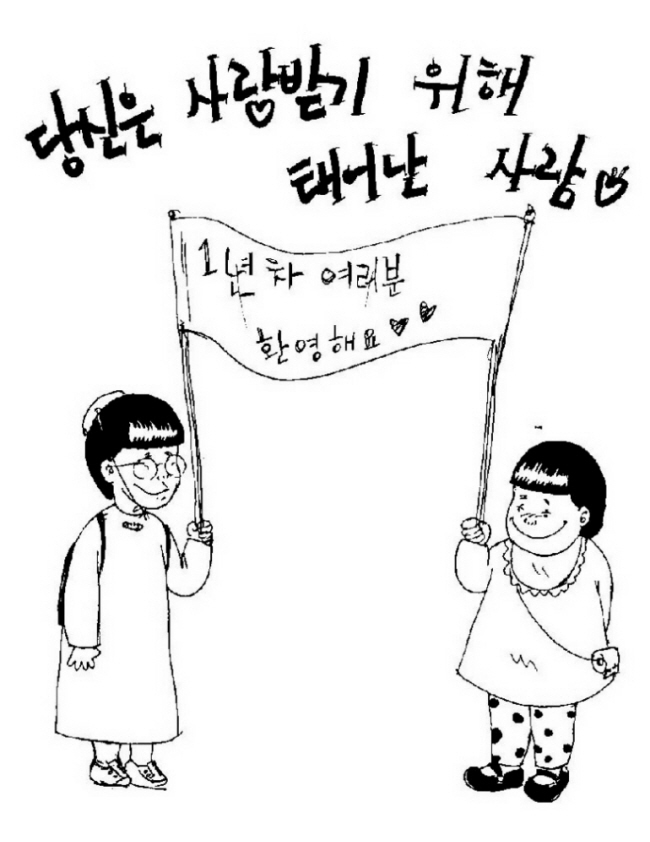 당신은 사랑받기 위해
태어난 사람
1년차 여러분
환영해요